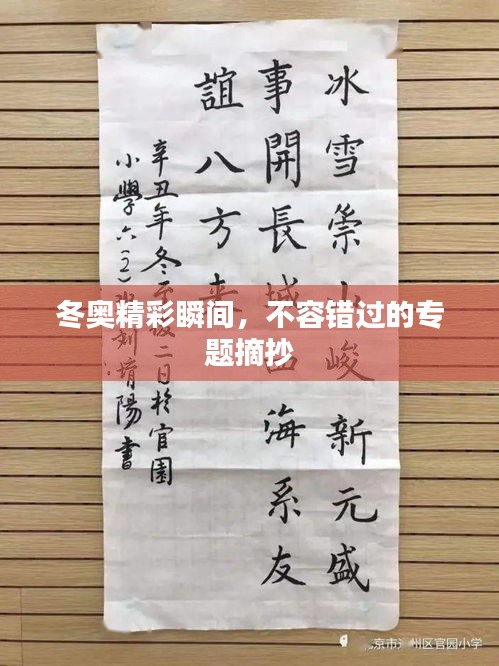 冰雪崇山峻 新元盛
事開長城 四海系友
誼八方来
辛丑年冬至後二日於官園
小學六(2) 劉堉陽書
冬奥精彩瞬间，不容错过的专
题摘抄
北京市通州区官园小学